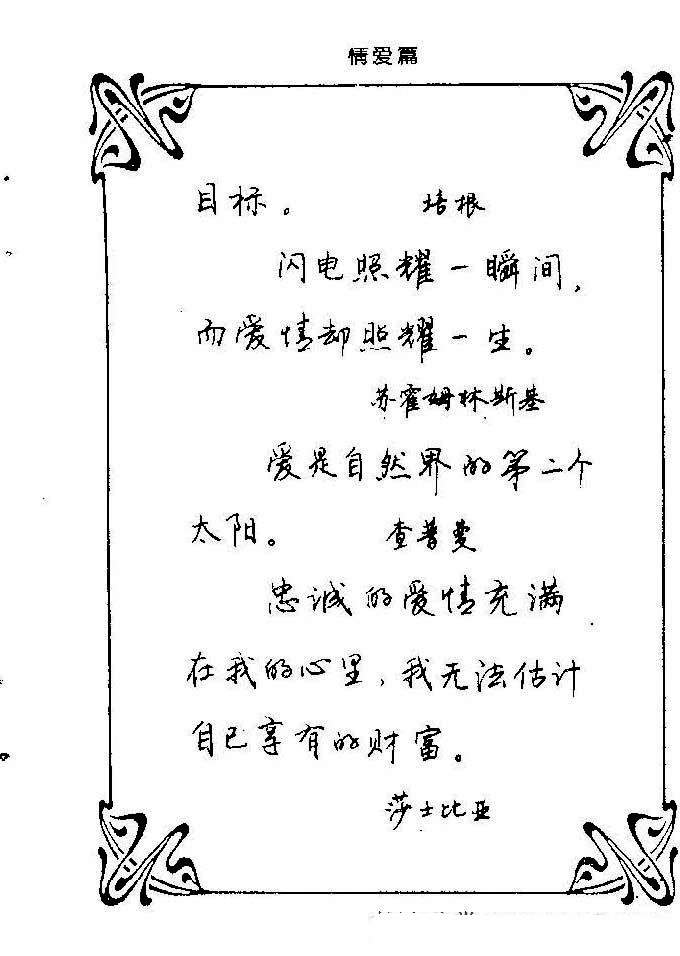 情爱篇
目标。 培根
闪电照耀一瞬间，
而爱情却照耀一生。
苏霍姆林斯基
爱是自然界的第二个
太阳。 查普曼
忠诚的爱情充满
在我的心里，我无法估计
自己享有的财富。
莎士比亚